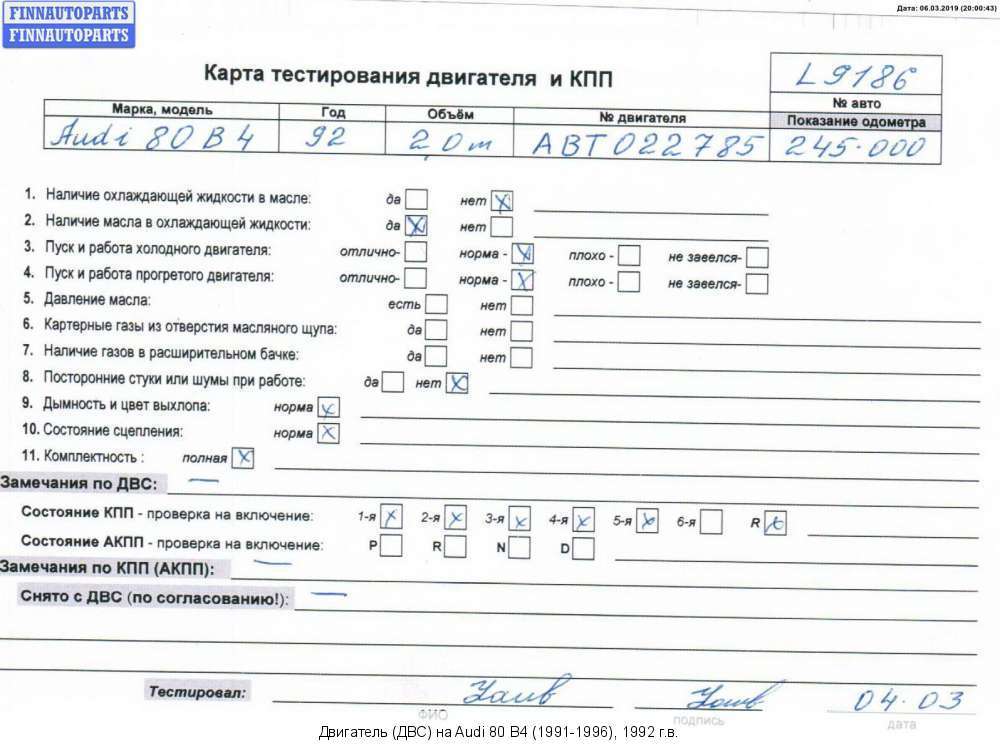 FINNAUTOPARTS
FINNAUTOPARTS
Дата: 06.03.2019 (20:00:43)
Карта тестирования двигателя и КПП
L9186
№ авто
Марка, модель Год Объём № двигателя Показание одометра
Audi 80 B4 92 2,0m ABT022785 245·000
1. Наличие охлаждающей жидкости в масле: да нет X
2. Наличие масла в охлаждающей жидкости: да X нет
3. Пуск и работа холодного двигателя: отлично- норма - X плохо - не завелся-
4. Пуск и работа прогретого двигателя: отлично- норма - X плохо - не завелся-
5. Давление масла: есть нет
6. Картерные газы из отверстия масляного щупа: да нет
7. Наличие газов в расширительном бачке: да нет
8. Посторонние стуки или шумы при работе: да нет X
9. Дымность и цвет выхлопа: норма X
10. Состояние сцепления: норма X
11. Комплектность : полная X
Замечания по ДВС: —
Состояние КПП - проверка на включение: 1-я X 2-я X 3-я X 4-я X 5-я X 6-я R X
Состояние АКПП - проверка на включение: P R N D
Замечания по КПП (АКПП): —
Снято с ДВС (по согласованию!): —
Тестировал: 04.03
ФИО подпись дата
Двигатель (ДВС) на Audi 80 B4 (1991-1996), 1992 г.в.